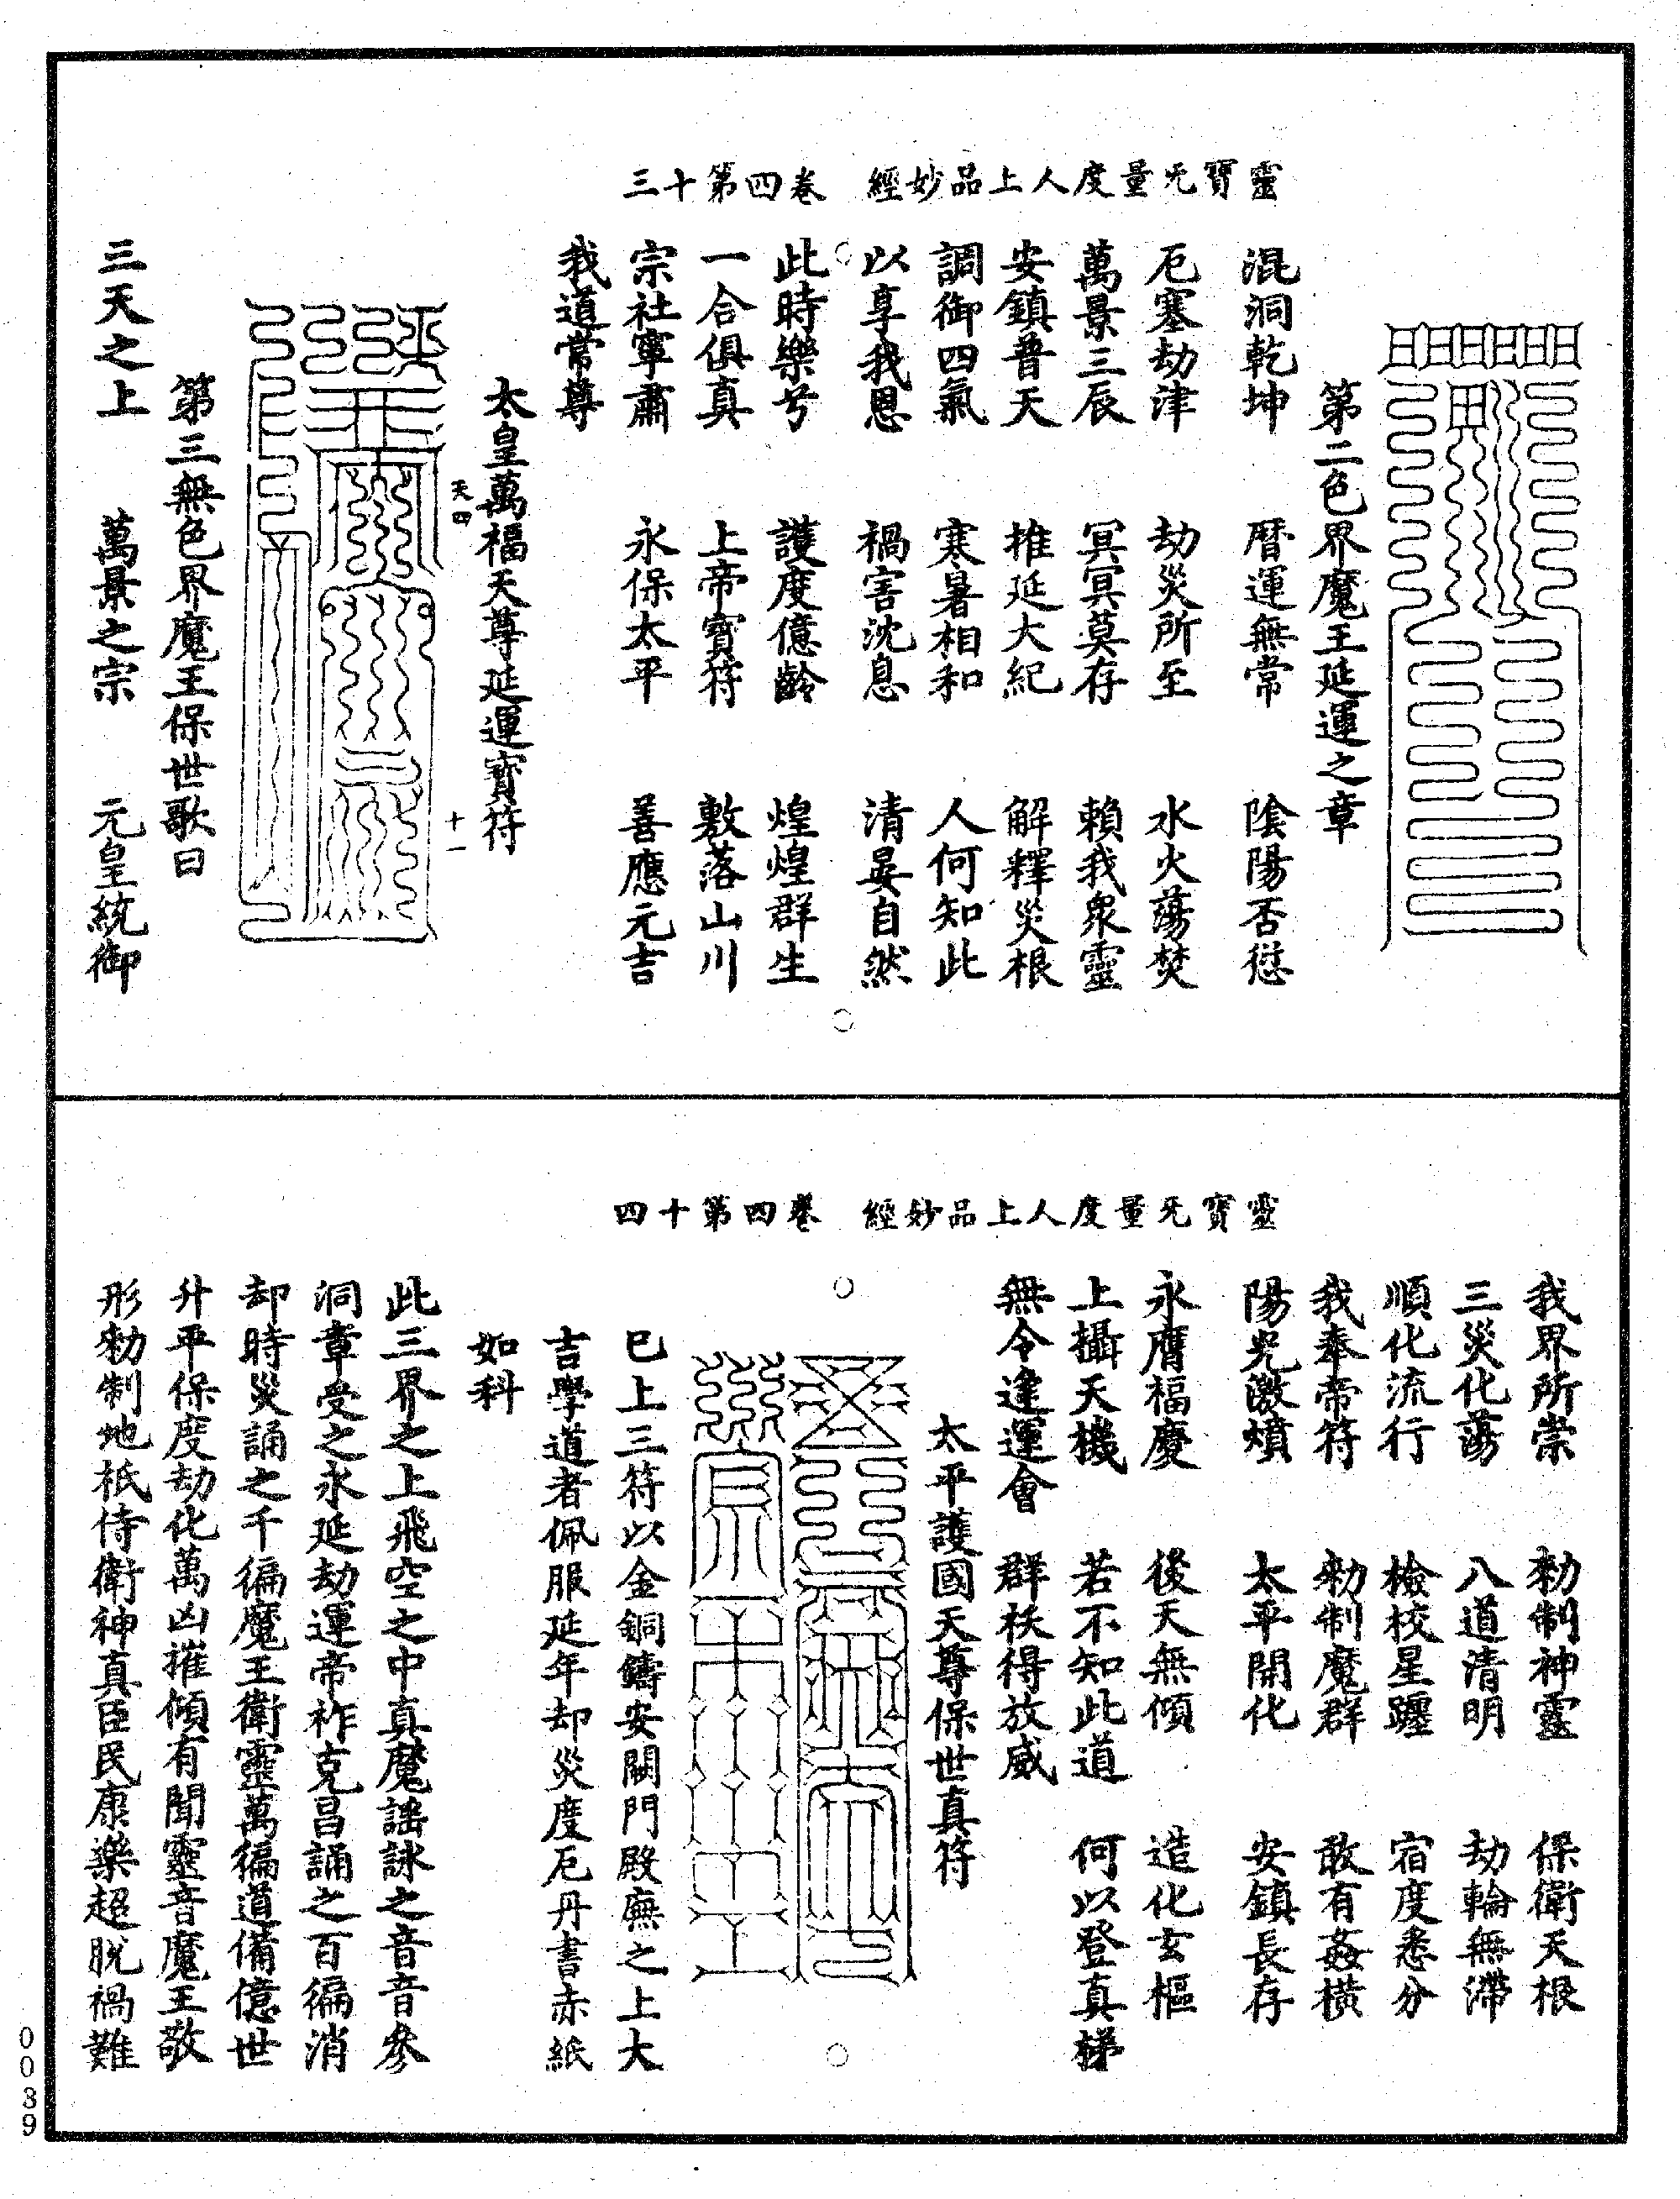 靈寶旡量度人上品妙經　卷四第十三
第二色界魔王延運之章
混洞乾坤　曆運無常　陰陽否愆
厄塞劫津　劫災所至　水火蕩焚
萬景三辰　冥冥莫存　賴我衆靈
安鎮普天　推延大紀　解釋災根
調御四氣　寒暑相和　人何知此
以享我恩　禍害沈息　清晏自然
此時樂兮　護度億齡　煌煌群生
一合俱真　上帝寶符　敷落山川
宗社寧肅　永保太平　善應元吉
我道常尊
太皇萬福天尊延運寶符
天四　十一
第三無色界魔王保世歌曰
三天之上　萬景之宗　元皇統御
靈寶旡量度人上品妙經　卷四第十四
我界所崇　勑制神靈　保衛天根
三災化蕩　八道清明　劫輪無滯
順化流行　檢校星躔　宿度悉分
我奉帝符　勑制魔群　敢有姦橫
陽光激熉　太平開化　安鎮長存
永膺福慶　後天無傾　造化玄樞
上攝天機　若不知此道　何以登真梯
無令逢運會　群袄得放威
太平護國天尊保世真符
巳上三符以金銅鑄安闕門殿廡之上大
吉學道者佩服延年却災度厄丹書赤紙
如科
此三界之上飛空之中真魔謠詠之音音參
洞章受之永延劫運帝祚克昌誦之百徧消
却時災誦之千徧魔王衛靈萬徧道備億世
升平保度劫化萬凶摧傾有聞靈音魔王敬
形勑制地袛侍衛神真臣民康樂超脫禍難
0039